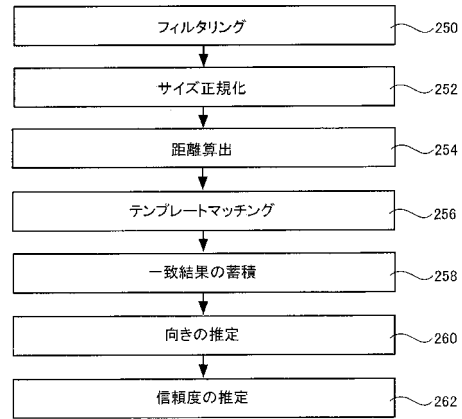 フィルタリング 250
サイズ正規化 252
距離算出 254
テンプレートマッチング 256
一致結果の蓄積 258
向きの推定 260
信頼度の推定 262